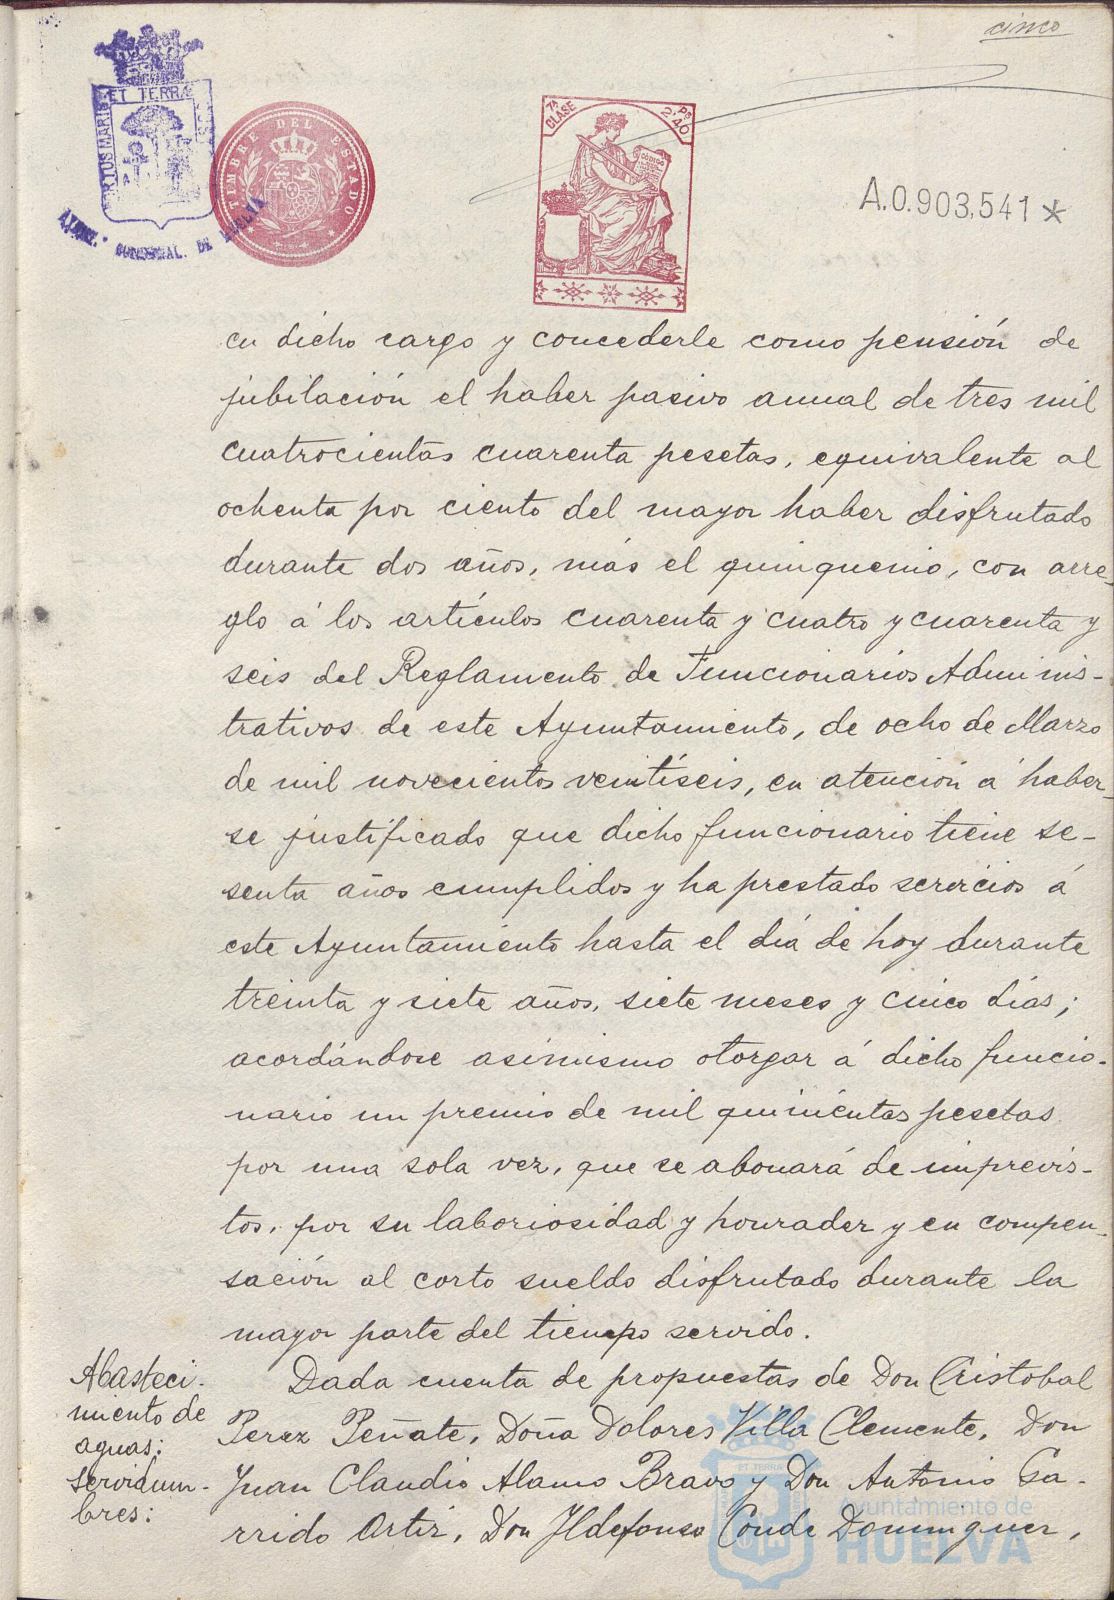 cinco
ET TERRÆ
PORTUS MARIS
CUSTODIA
AYUNT. CONSTNAL. DE HUELVA
TIMBRE DEL ESTADO
7ª CLASE
Pts 2'40
CÓDIGO
A.0.903,541 *
en dicho cargo y concederle como pensión de
jubilación el haber pasivo anual de tres mil
cuatrocientas cuarenta pesetas, equivalente al
ochenta por ciento del mayor haber disfrutado
durante dos años, más el quinquenio, con arre-
glo á los artículos cuarenta y cuatro y cuarenta y
seis del Reglamento de Funcionarios Adminis-
trativos de este Ayuntamiento, de ocho de Marzo
de mil novecientos veintiseis, en atención á haber-
se justificado que dicho funcionario tiene se-
senta años cumplidos y ha prestado servicios á
este Ayuntamiento hasta el día de hoy durante
treinta y siete años, siete meses y cinco días;
acordándose asimismo otorgar á dicho funcio-
nario un premio de mil quinientas pesetas
por una sola vez, que se abonará de imprevis-
tos, por su laboriosidad y honradez y en compen-
sación al corto sueldo disfrutado durante la
mayor parte del tiempo servido.
Abasteci-
miento de
aguas:
servidum-
bres:
Dada cuenta de propuestas de Don Cristobal
Perez Peñate, Doña Dolores Villa Clemente, Don
Juan Claudio Alamo Bravo y Don Antonio Ga-
rrido Ortiz, Don Ildefonso Conde Dominguez,
ET TERRÆ
Ayuntamiento de
HUELVA